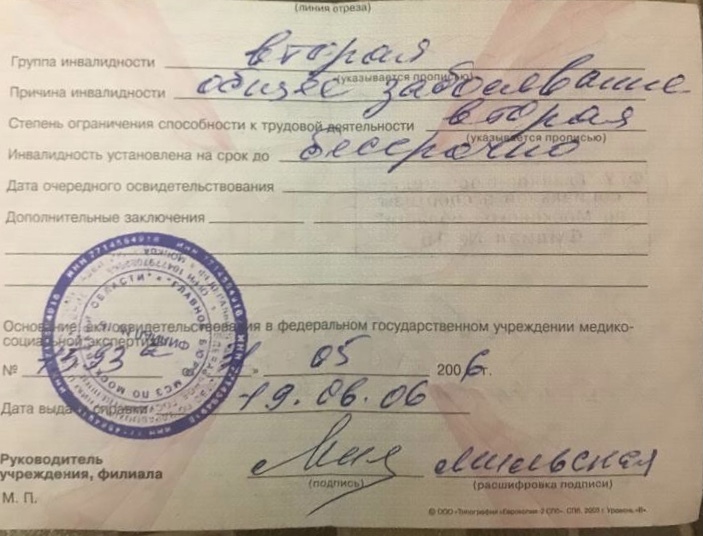 (линия отреза)
Группа инвалидности вторая
(указывается прописью)
Причина инвалидности общее заболевание
Степень ограничения способности к трудовой деятельности вторая
(указывается прописью)
Инвалидность установлена на срок до бессрочно
Дата очередного освидетельствования
Дополнительные заключения
Основание: акт освидетельствования в федеральном государственном учреждении медико-
социальной экспертизы
№ 05 2006 г.
Дата выдачи справки 19.06.06
Руководитель
учреждения, филиала
(подпись) (расшифровка подписи)
М. П.
ИНН 7714564916